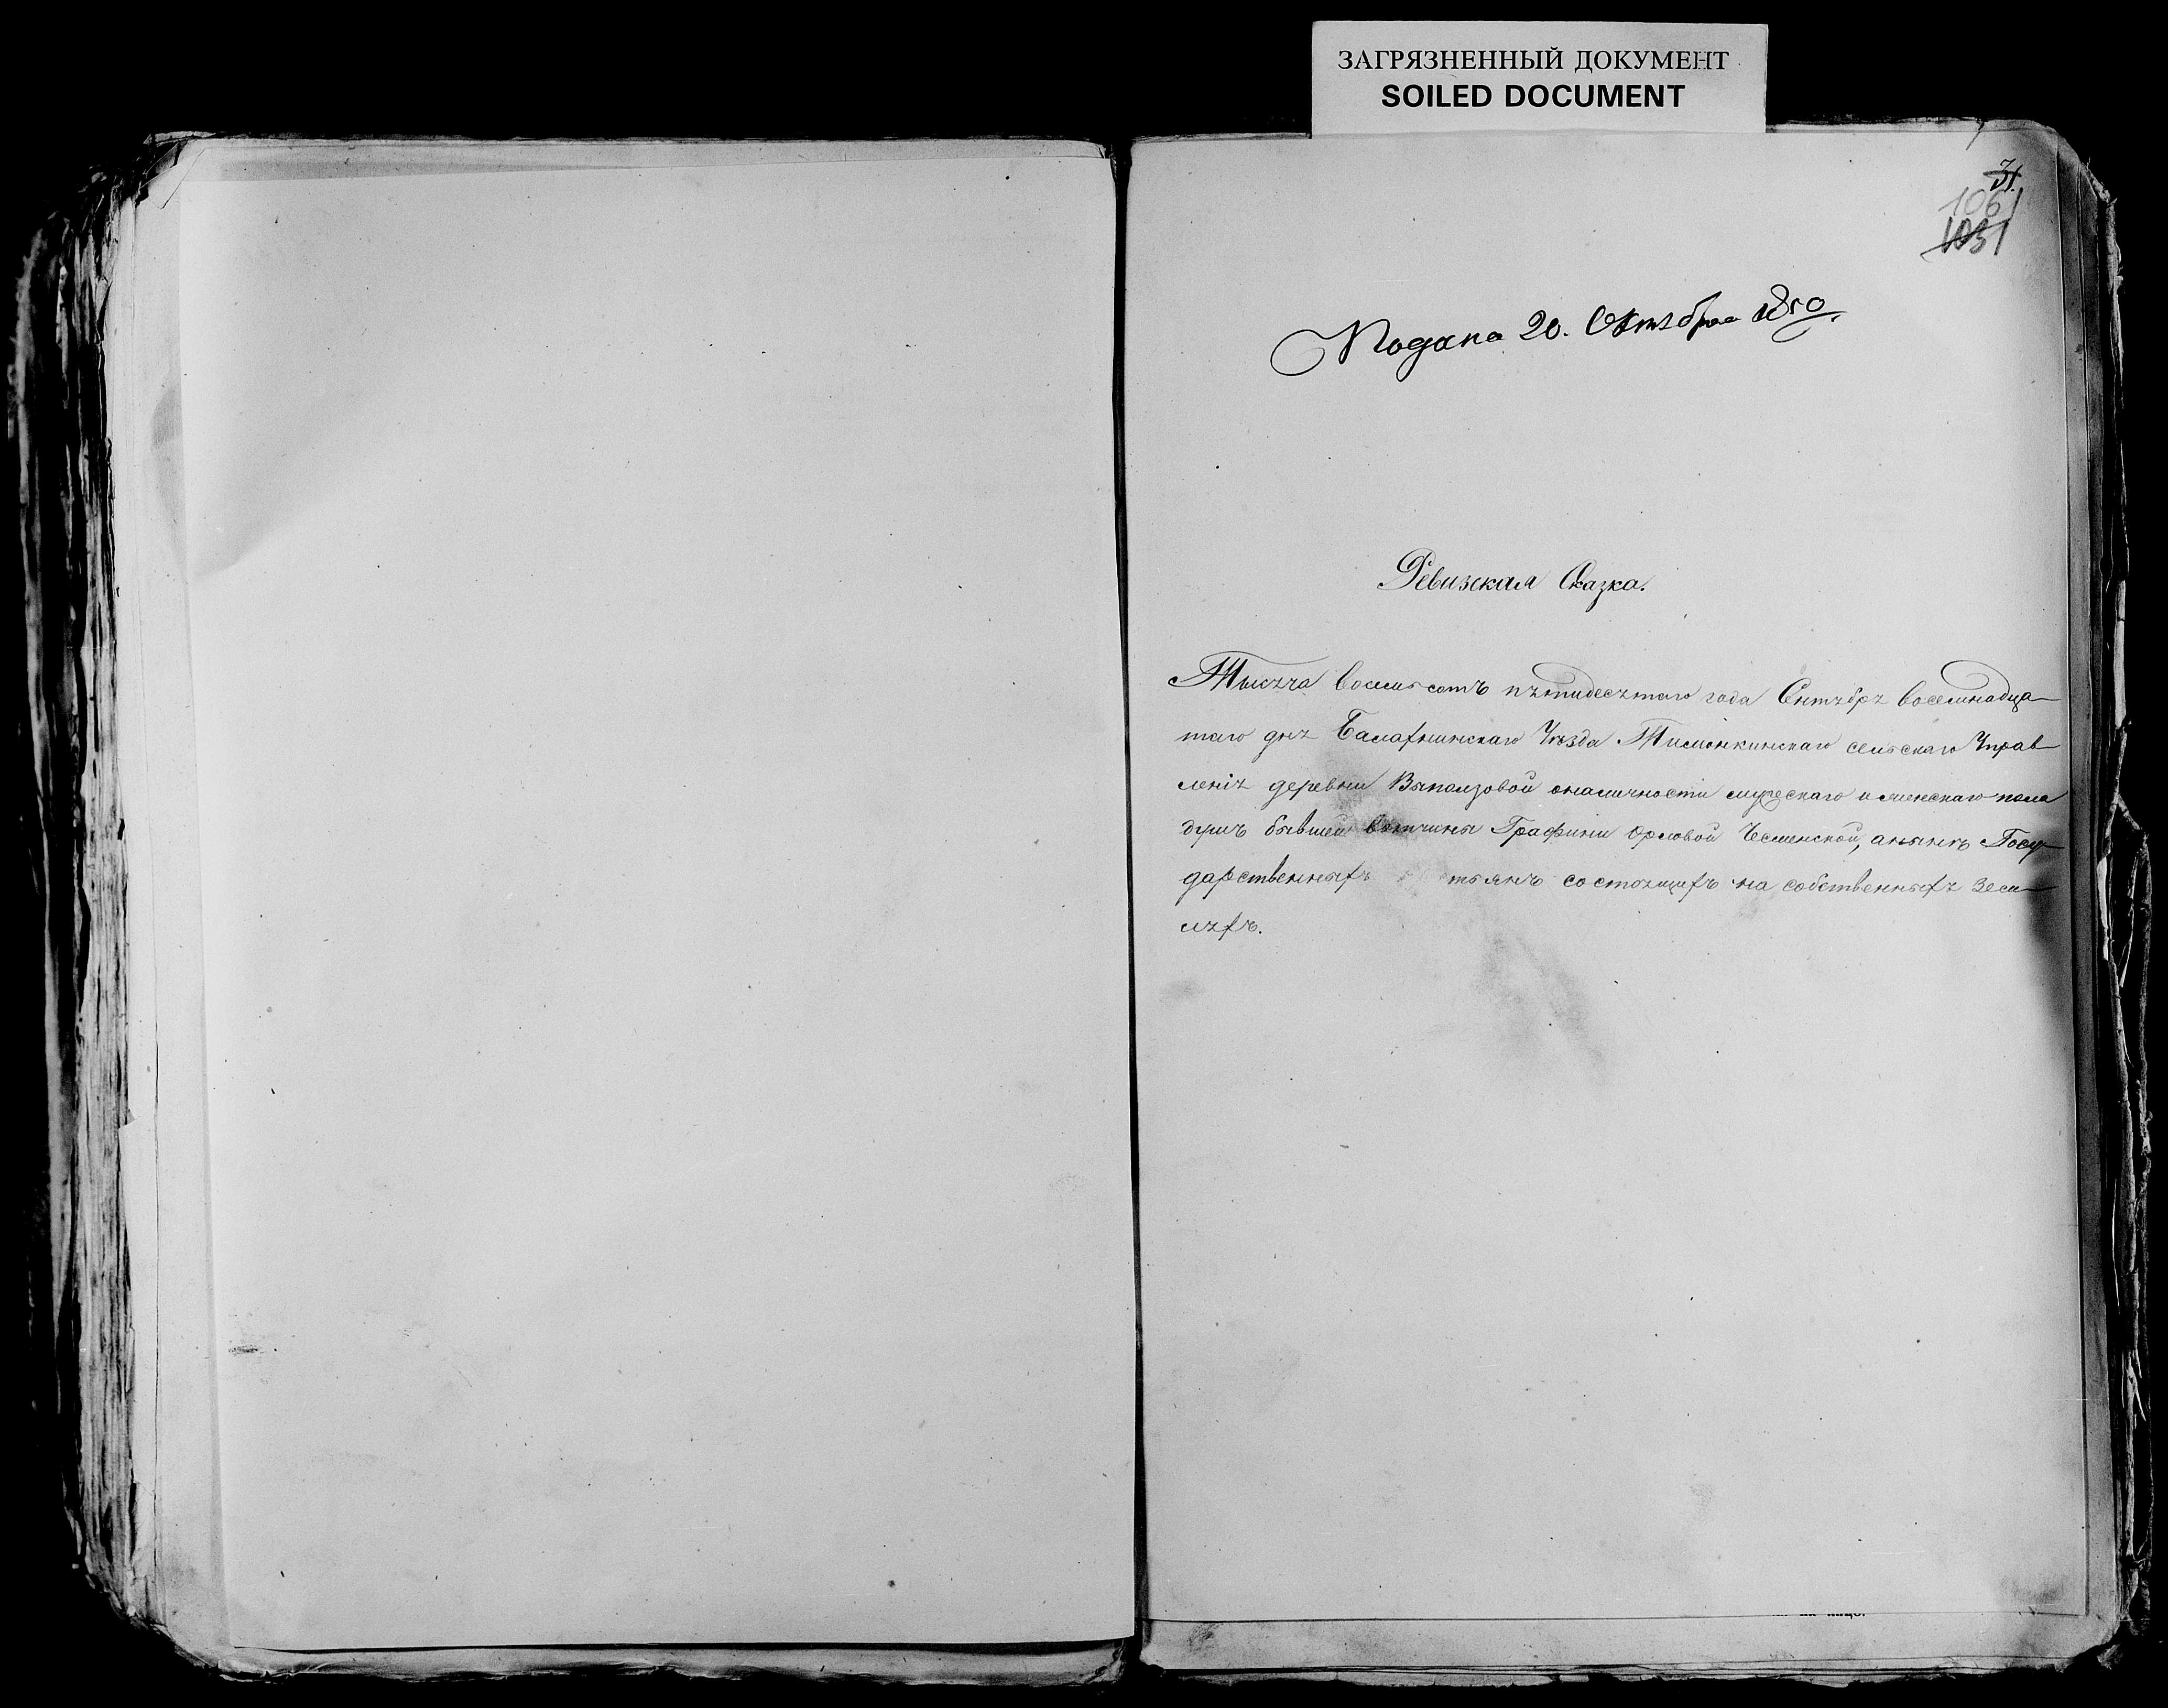 ЗАГРЯЗНЕННЫЙ ДОКУМЕНТ
SOILED DOCUMENT
31
106
1031
Подана 20. Октября 1850.
Ревизская Сказка.
Тысяча восемьсотъ пятидесятаго года Октября восемнадца-
таго дня Балахнинскаго Уѣзда Тимонкинскаго сельскаго Управ-
ленія деревни Выползовой оналичности мужескаго и женскаго пола
душъ бывшей вотчины Графини Орловой Чесменской, анынѣ Госу-
дарственныхъ тьянъ состоящихъ на собственныхъ зем-
ляхъ.